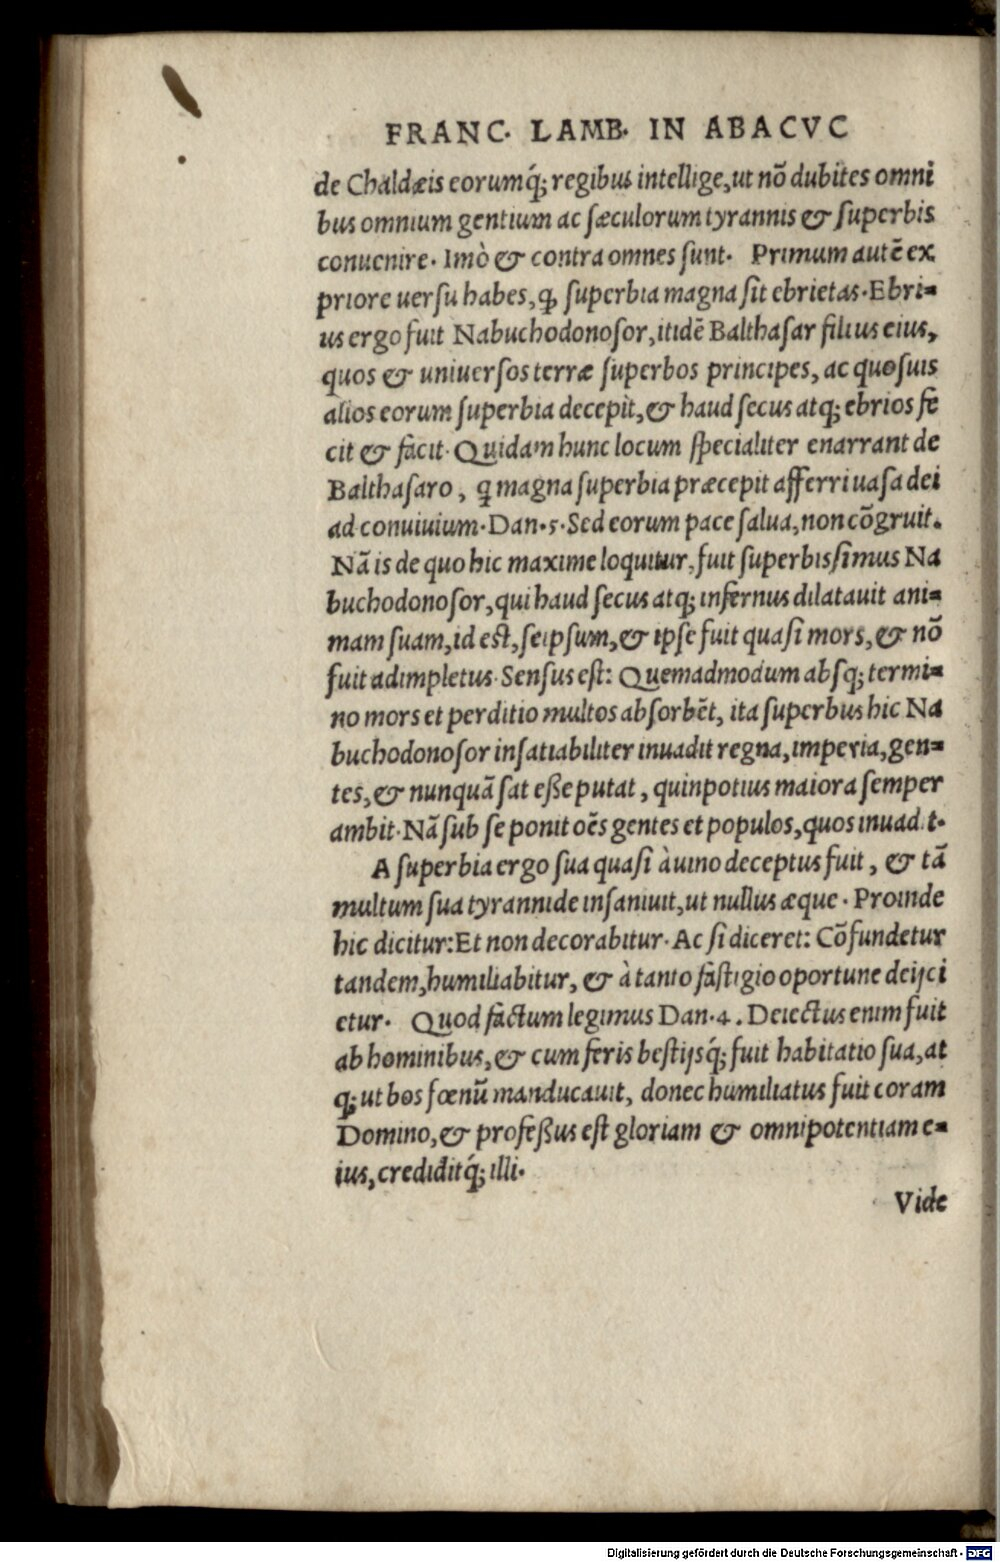 FRANC. LAMB. IN ABACVC
de Chaldæis eorumq́; regibus intellige, ut nō dubites omni
bus omnium gentium ac sæculorum tyrannis & superbis
conuenire. Imò & contra omnes sunt. Primum autē ex
priore uersu habes, ꝙ superbia magna sit ebrietas. Ebri=
us ergo fuit Nabuchodonosor, itidē Balthasar filius eius,
quos & uniuersos terræ superbos principes, ac quosuis
alios eorum superbia decepit, & haud secus atq; ebrios fe
cit & facit. Quidam hunc locum specialiter enarrant de
Balthasaro, ꝙ magna superbia præcepit afferri uasa dei
ad conuiuium. Dan. 5. Sed eorum pace salua, non cōgruit.
Nā is de quo hic maxime loquitur, fuit superbissimus Na
buchodonosor, qui haud secus atq; infernus dilatauit ani=
mam suam, id est, seipsum, & ipse fuit quasi mors, & nō
fuit adimpletus. Sensus est: Quemadmodum absq; termi=
no mors et perditio multos absorbēt, ita superbus hic Na
buchodonosor insatiabiliter inuadit regna, imperia, gen=
tes, & nunquā sat eße putat, quinpotius maiora semper
ambit. Nā sub se ponit oēs gentes et populos, quos inuadit.
A superbia ergo sua quasi à uino deceptus fuit, & tā
multum sua tyrannide insaniuit, ut nullus æque. Proinde
hic dicitur: Et non decorabitur. Ac si diceret: Cōfundetur
tandem, humiliabitur, & à tanto fastigio oportune deijci
etur. Quod factum legimus Dan. 4. Deiectus enim fuit
ab hominibus, & cum feris bestijsq́; fuit habitatio sua, at
q; ut bos fœnū manducauit, donec humiliatus fuit coram
Domino, & profeßus est gloriam & omnipotentiam e=
ius, crediditq́; illi.
Vide
Digitalisierung gefördert durch die Deutsche Forschungsgemeinschaft - DFG